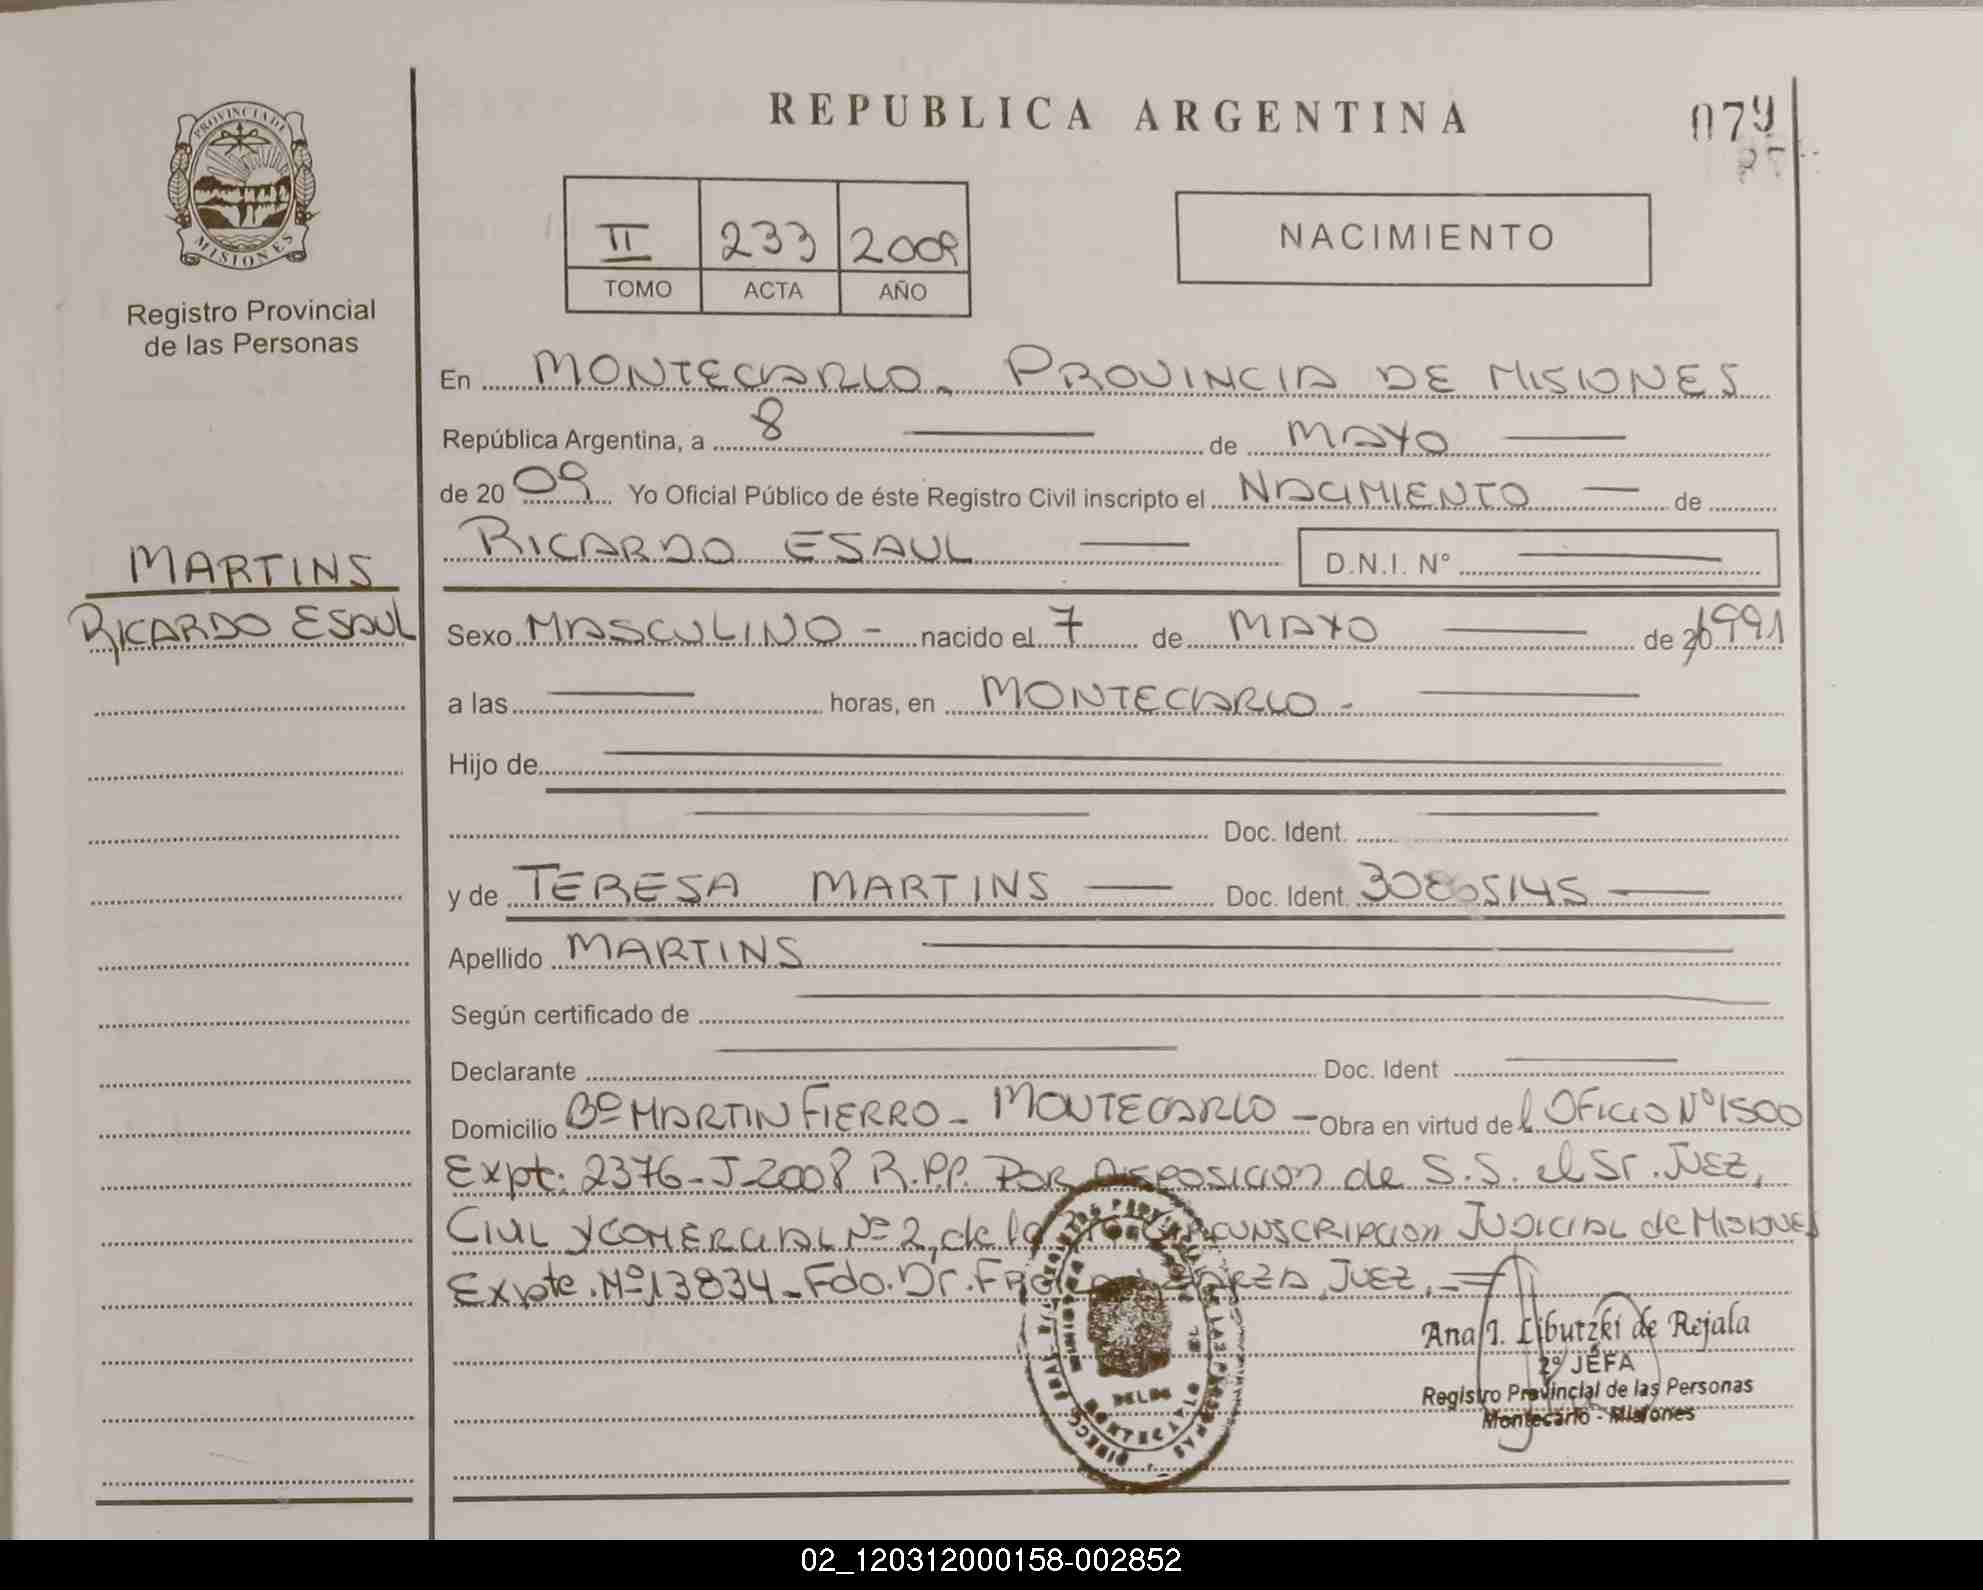 PROVINCIA DE
MISIONES
Registro Provincial
de las Personas
REPUBLICA ARGENTINA
079
II 233 2009
TOMO ACTA AÑO
NACIMIENTO
En MONTECARLO - PROVINCIA DE MISIONES
República Argentina, a 8 de MAYO
de 20 09 Yo Oficial Público de éste Registro Civil inscripto el NACIMIENTO de
RICARDO ESAUL D.N.I. N°
MARTINS
RICARDO ESAUL
Sexo MASCULINO - nacido el 7 de MAYO de 1991
a las horas, en MONTECARLO -
Hijo de
Doc. Ident.
y de TERESA MARTINS Doc. Ident. 30805145
Apellido MARTINS
Según certificado de
Declarante Doc. Ident
Domicilio Bº MARTIN FIERRO - MONTECARLO - Obra en virtud del OFICIO Nº 1500
Expt: 2376-J-2008 R.P.P. POR DISPOSICION de S.S. el Sr. JUEZ,
CIVIL Y COMERCIAL Nº 2, de la CIRCUNSCRIPCION JUDICIAL de MISIONES
Expte. Nº 13834 - Fdo. Dr. JUEZ. -
Ana I. Libutzki de Rejala
2º JEFA
Registro Provincial de las Personas
Montecarlo - Misiones
02_120312000158-002852